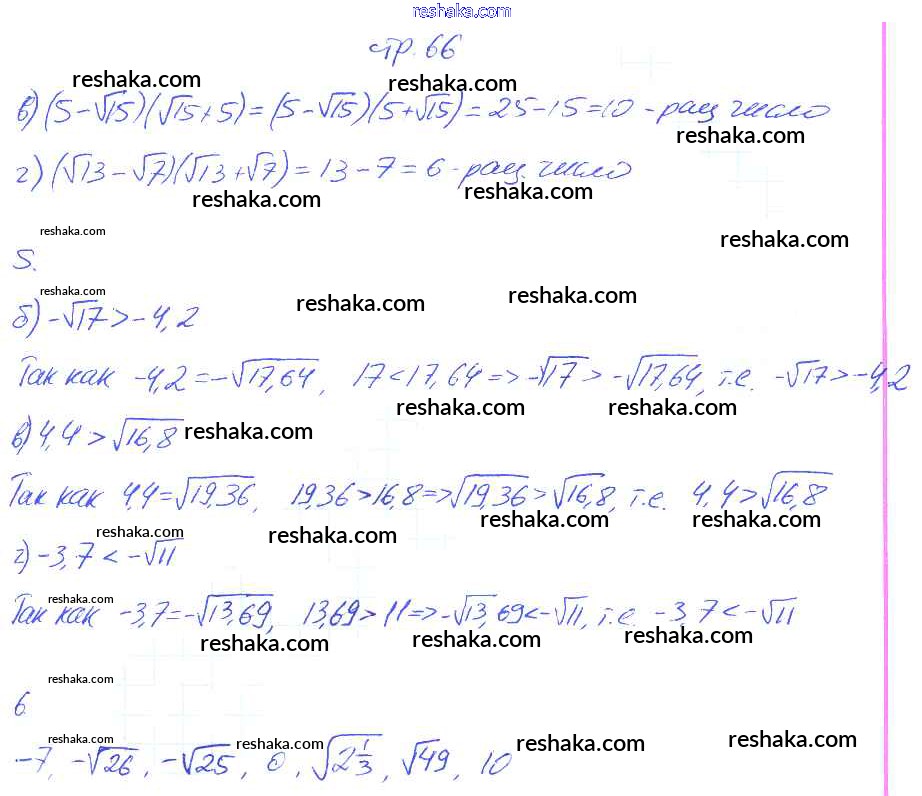 reshaka.com
стр. 66
reshaka.com reshaka.com
в) (5-√15)(√15+5) = (5-√15)(5+√15) = 25-15=10 - рац число
reshaka.com
г) (√13-√7)(√13+√7) = 13-7=6 - рац. число
reshaka.com reshaka.com
reshaka.com reshaka.com
5.
reshaka.com reshaka.com reshaka.com
б) -√17 > -4,2
Так как -4,2=-√17,64, 17<17,64 => -√17 > -√17,64, т.е. -√17 > -4,2
reshaka.com reshaka.com
в) 4,4 > √16,8 reshaka.com
Так как 4,4=√19,36, 19,36>16,8=>√19,36>√16,8, т.е. 4,4>√16,8
reshaka.com reshaka.com reshaka.com reshaka.com
г) -3,7 < -√11
reshaka.com
Так как -3,7=-√13,69, 13,69>11=>-√13,69<-√11, т.е. -3,7<-√11
reshaka.com reshaka.com reshaka.com
reshaka.com
6.
reshaka.com reshaka.com reshaka.com reshaka.com
-7, -√26, -√25, 0, √2 1/3, √49, 10